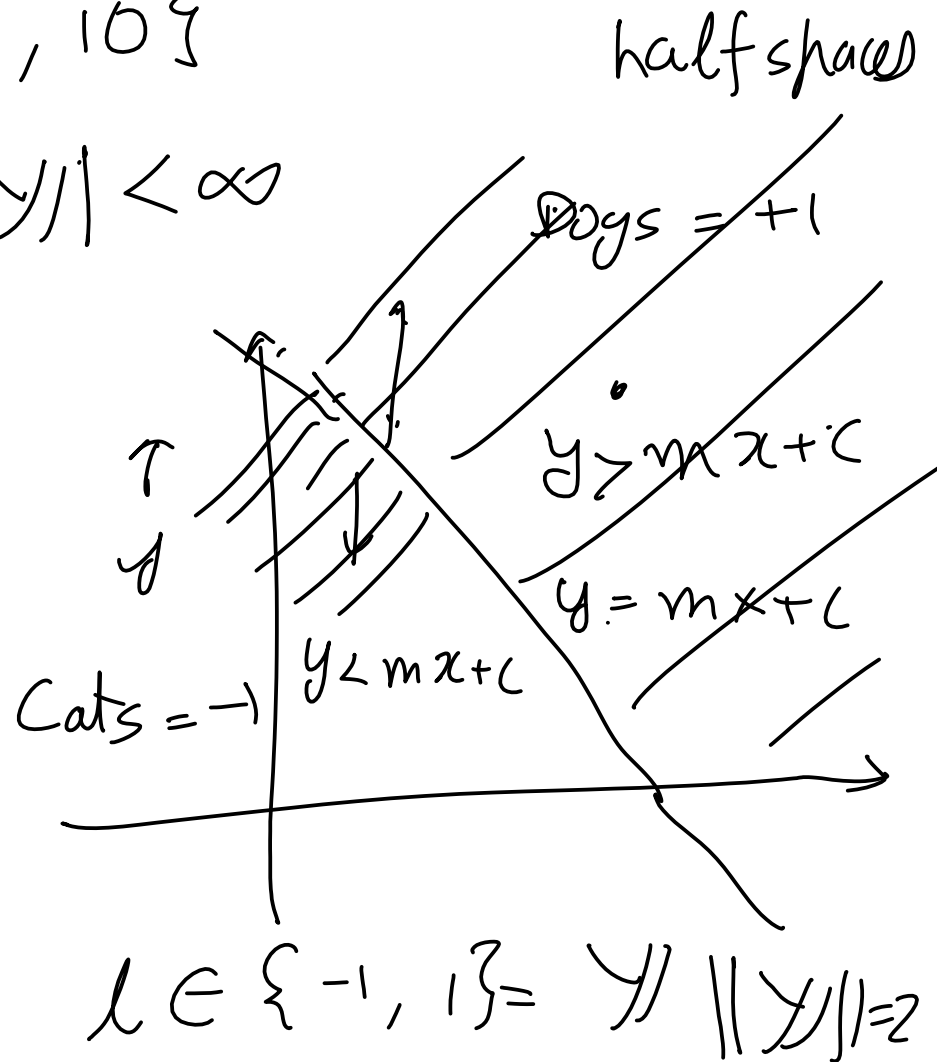 , 10}
halfspaces
𝒴| < ∞
Dogs = +1
y > mx + c
y
y = mx + c
y < mx + c
Cats = -1
l ∈ {-1, 1} = 𝒴 ||𝒴|| = 2